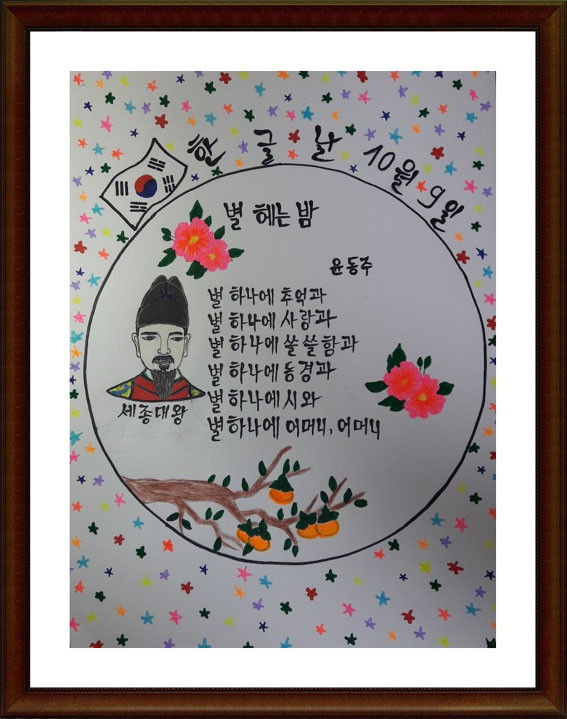 한글날 10월 9일
별 헤는 밤
윤동주
별 하나에 추억과
별 하나에 사랑과
별 하나에 쓸쓸함과
별 하나에 동경과
별 하나에 시와
별 하나에 어머니, 어머니
세종대왕